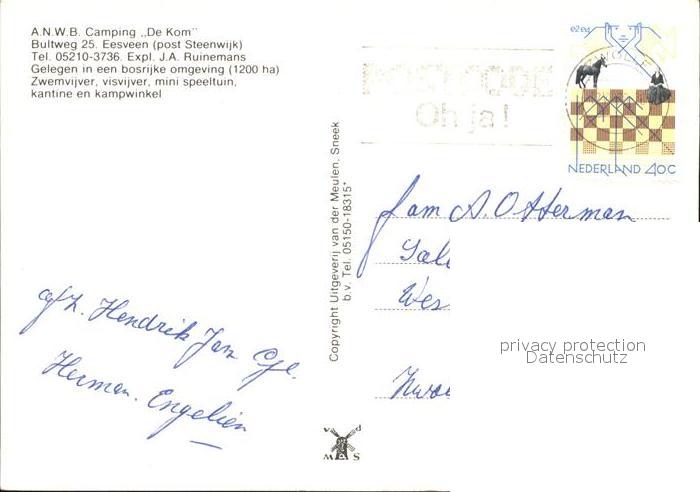 A.N.W.B. Camping „De Kom"
Bultweg 25. Eesveen (post Steenwijk)
Tel. 05210-3736. Expl. J.A. Ruinemans
Gelegen in een bosrijke omgeving (1200 ha)
Zwemvijver, visvijver, mini speeltuin,
kantine en kampwinkel
POSTCODE
Oh ja!
e2e4
NEDERLAND 40C
Copyright Uitgeverij van der Meulen, Sneek
b.v. Tel. 05150-18315*
fam A. Otterman
Wes
privacy protection
Datenschutz
afz. Hendrik Jan
Herman. Engelien
v d
M S